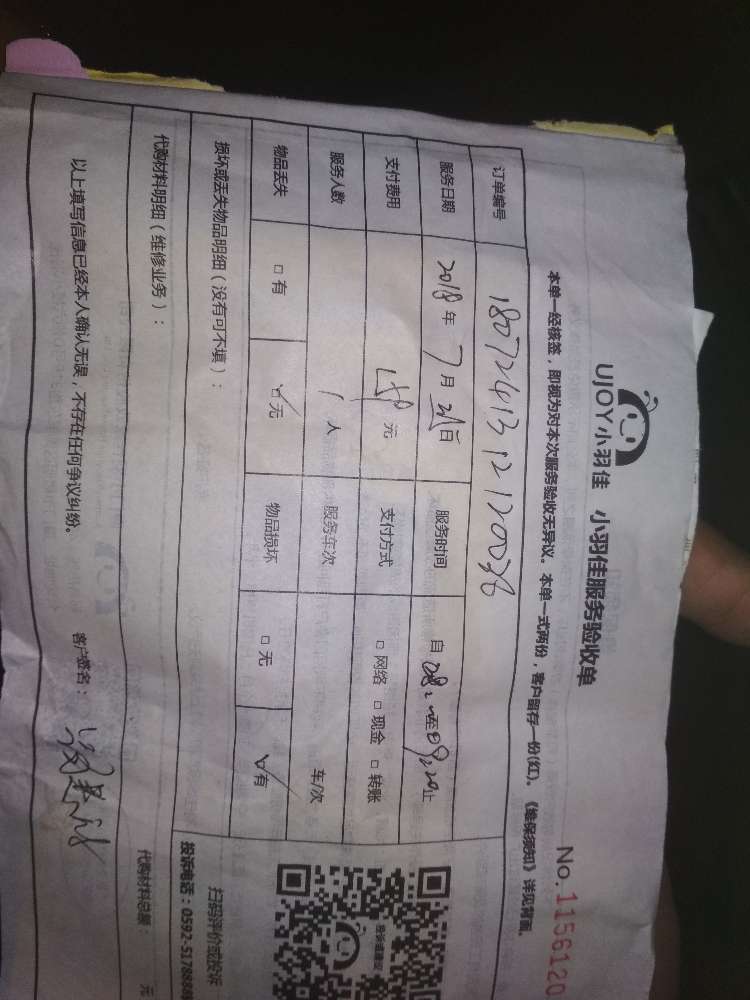 UJOY小羽佳 小羽佳服务验收单
No.1156120
本单一经核签，即视为对本次服务验收无异议。本单一式两份，客户留存一份(红)。《维保须知》详见背面。
订单编号
服务日期 2018年7月 日 服务时间 自 至 止
支付费用 元 支付方式 □网络 □现金 □转账
服务人数 1人 服务车次 车/次
物品丢失 □有 □无 物品损坏 □无 □有
损坏或丢失物品明细（没有可不填）：
扫码评价或投诉
投诉电话：0592-5178888
代购材料明细（维修业务）：
代购材料总额： 元
以上填写信息已经本人确认无误，不存在任何争议纠纷。 客户签名：